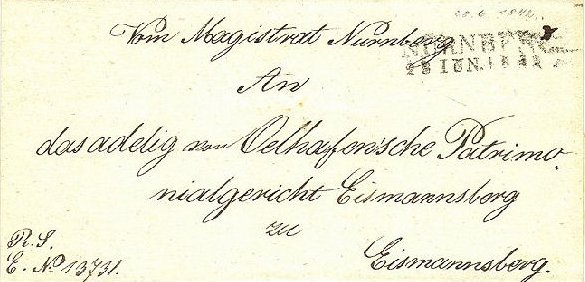 Vom Magistrat Nürnberg
NÜRNBERG
JUN.
An
das adelig von Oelhafen'sche Patrimo
nialgericht Eismannsberg
zu
Eismannsberg.
R. S.
E. No 13731.